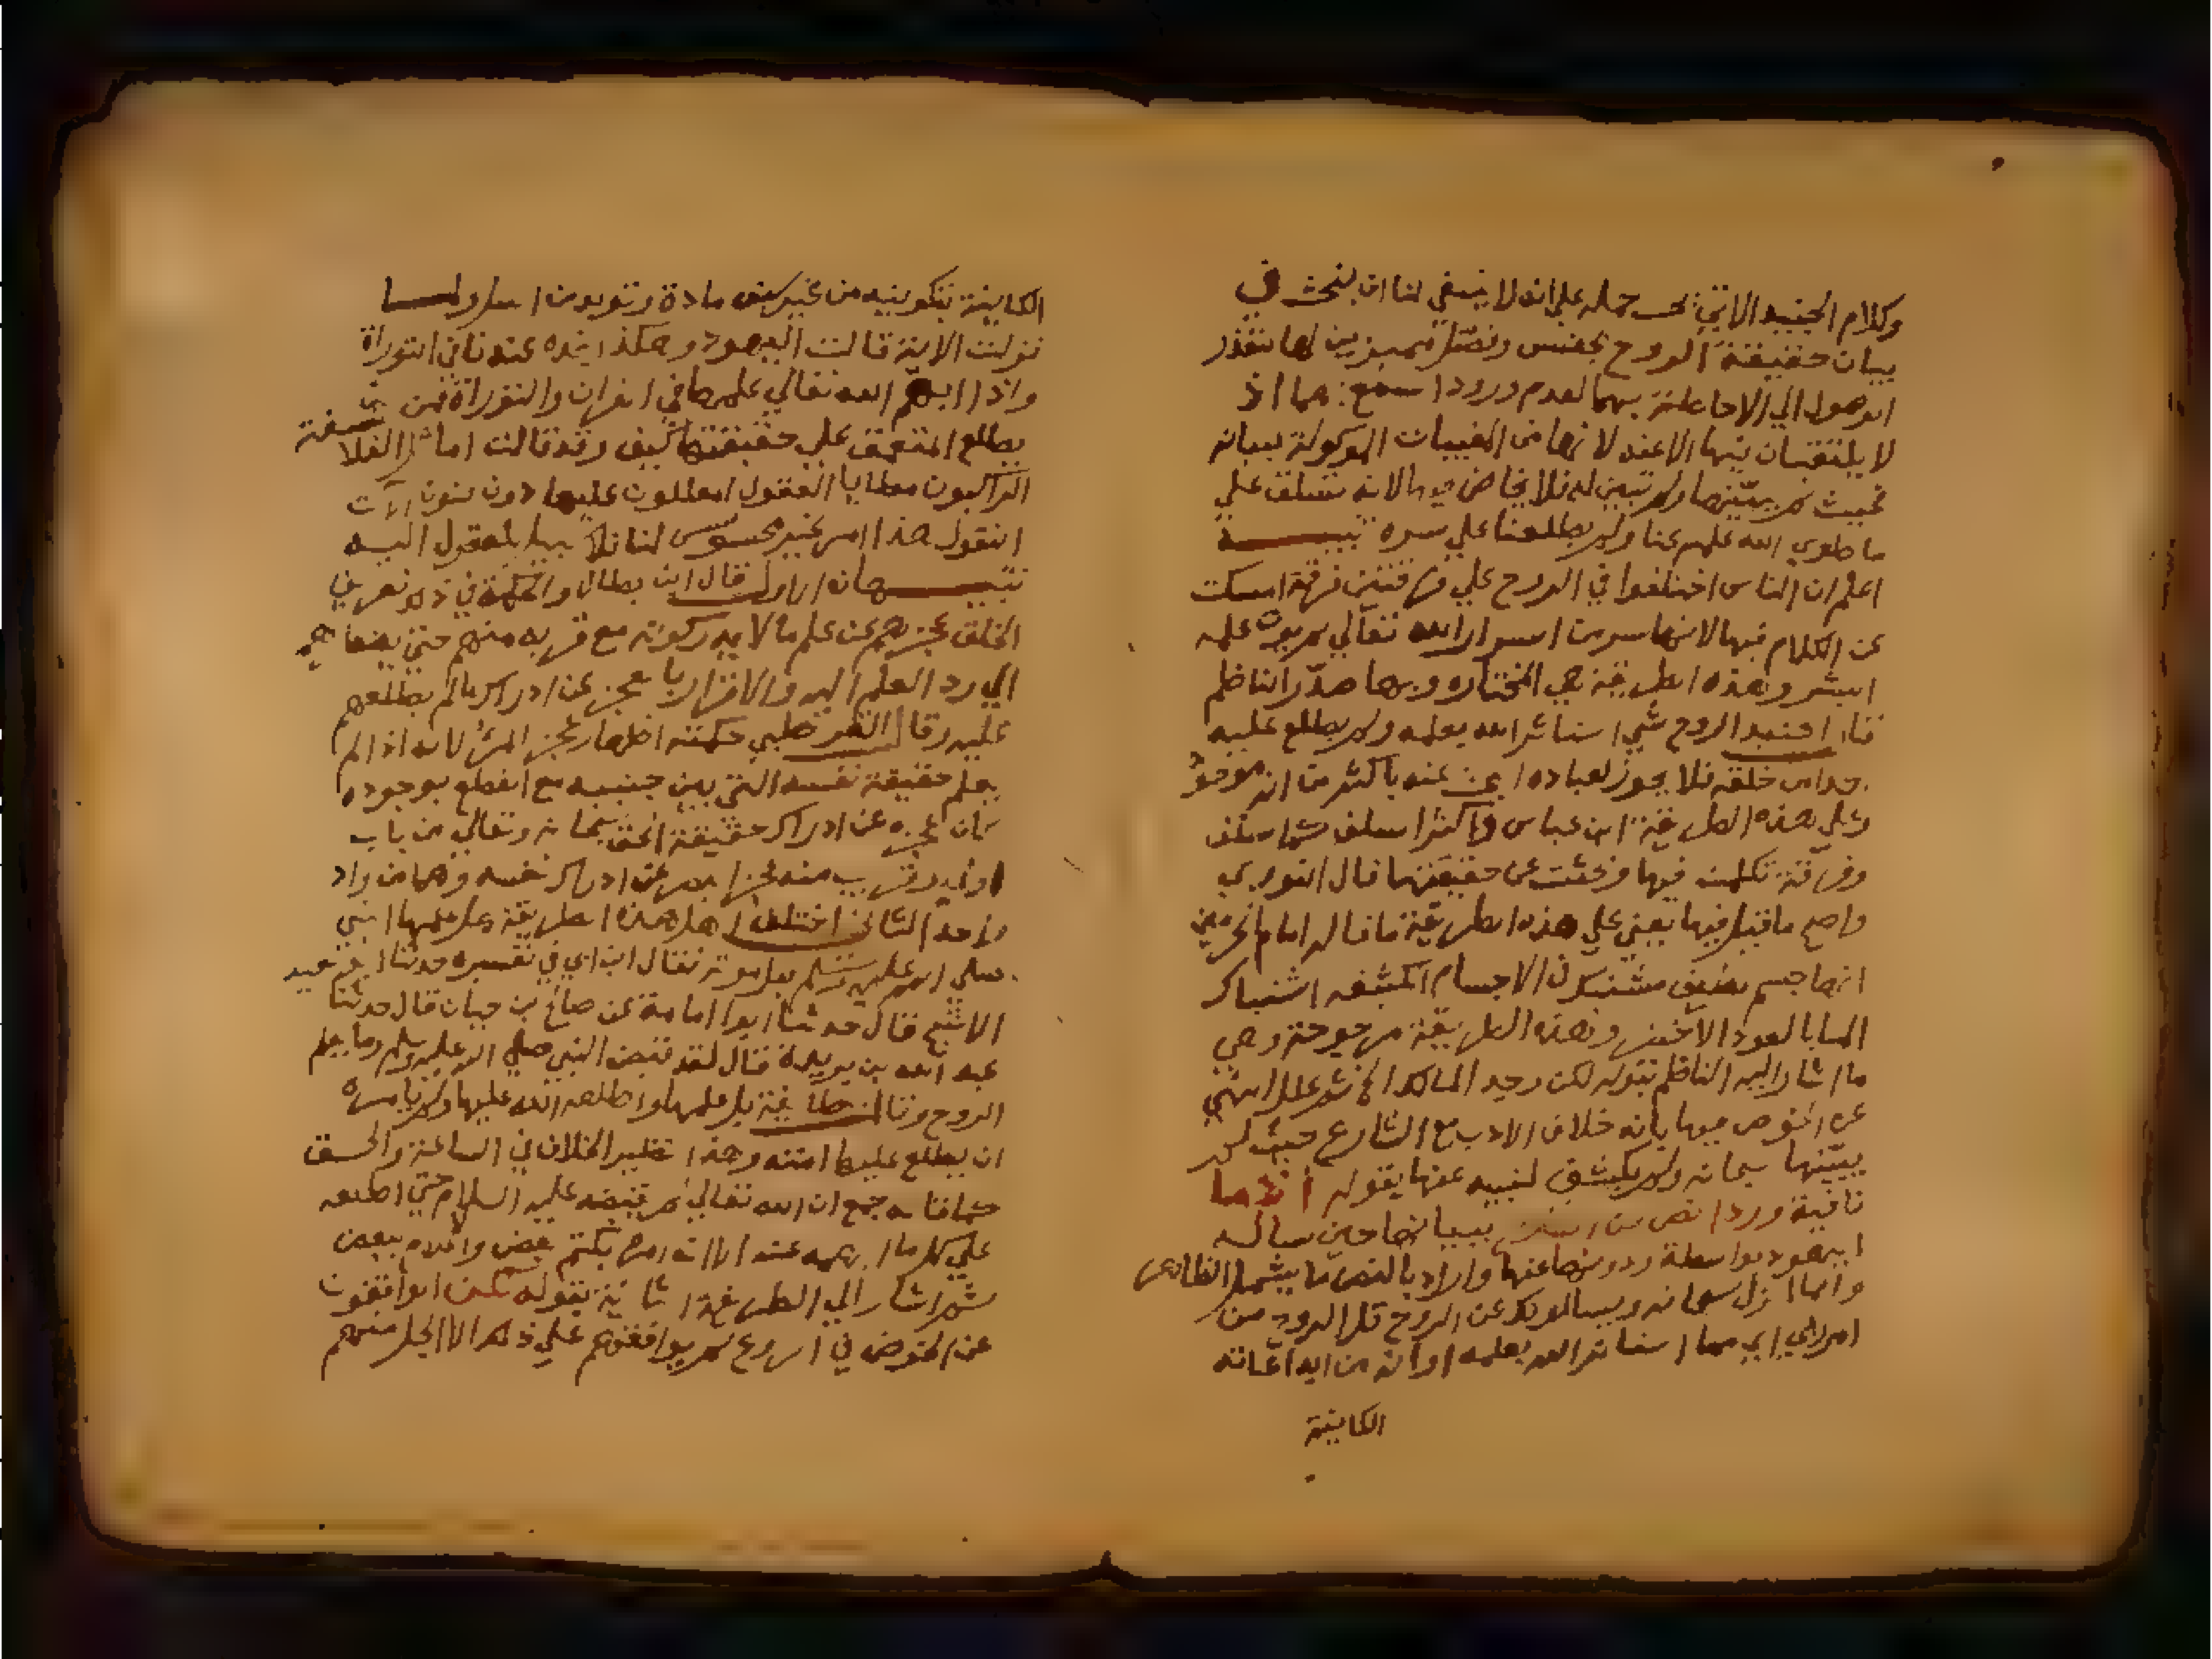 وكلام الجنيد الاتي حمله علي انه لا ينبغي لنا ان نبحث في
بيان حقيقة الروح بجنس وفصل مميزين لها لتعذر
الوصول الي الاحاطة بهما لعدم ورود السمع بهما اذ
لا يلتقيان منها الا عنه لانها من المغيبات الموكولة لبيانه
بحيث لم يبينها ولم تبين له فلا يخاض فيها لانه تسلق علي
ما طوي الله علمه عنا ولم يطلعنا علي سره تتمة
اعلم ان الناس اختلفوا في الروح علي فرقتين فرقة امسكت
عن الكلام فيها لانها سر من اسرار الله تعالي لم يوت علمه
البشر وهذه الطريقة هي المختاره وبها صدر الناظم
قال الجنيد الروح شي استاثر الله بعلمه ولم يطلع عليه
احدا من خلقه فلا يجوز لعباده البحث عنه باكثر من انه موجود
وعلي هذه الطريقة ابن عباس واكثر السلف
وفرقة تكلمت فيها وبحثت عن حقيقتها قال النووي
واصح ما قيل فيها يعني علي هذه الطريقة ما قاله امام الحرمين
انها جسم لطيف مشتبك في الاجسام الكثيفه اشتباك
الما بالعود الاخضر وهذه الطريقة مرجوحة وهي
ما اشار اليه الناظم بقوله لكن وجد لمالك الخ ثم علل النهي
عن الخوض فيها بانه خلاف الادب مع الشارع حيث لم
يبينها سبحانه ولم يكشف لنبيه عنها بقوله اذ ما
نافية وردا نص من ببيانها حين ساله
اليهود بواسطة عنها واراد بالنص ما يشمل الظاهر
وانما انزل سبحانه ويسالونك عن الروح قل الروح من
امر ربي اي مما استاثر الله بعلمه او انه من ابداعاته
الكاينة
الكاينة بتكوينه من غير سبق مادة وتولد من اصل ولما
نزلت الاية قالت اليهود وهكذا نجده عندنا في التوراة
واذا ابهم الله تعالي علمها في القران والتوراة فمن
يطلع المتعمق علي حقيقتها كيف وقد قالت اماثل الفلاسفة
الراكبون مطايا العقول
النقول هذا امر غير محسوس لنا فلا سبيل للعقول اليه
تنبيهان الاول قال ابن بطال والحكمة في ذلك تعريف
الخلق عجزهم عن علم ما لا يدركونه مع قربه منهم حتي يضطرهم
الي رد العلم اليه والاقرار بالعجز عن ادراك ما لم يطلعهم
عليه وقال القرطبي حكمته اظهار عجز المرء لانه اذا لم
يعلم حقيقة نفسه التي بين جنبيه مع القطع بوجوده
كان عجزه عن ادراك حقيقة الحق سبحانه وتعالي من باب
اولي وقريب منه عجز البصر عن ادراك نفسه
الثاني اختلف اهل هذه الطريقة هل علمها النبي
صلي الله عليه وسلم قبل موته فقال ابن ابي في تفسيره حدثنا ابو سعيد
الاشج قال حدثنا ابو اسامة عن صالح بن حيان قال حدثنا
عبد الله بن بريدة قال لقد قبض النبي صلي الله عليه وسلم وما يعلم
الروح وقال طائفة بل علمها واطلعه الله عليها ولم يامره
ان يطلع عليها امته وهذا نظير الخلاف في الساعة والحق
كما قاله جمع ان الله تعالي لم يقبضه عليه السلام حتي اطلعه
علي كل ما ابهمه عنه الا انه امر بكتم بعض والاعلام ببعض
ثم اشار الي الطريقة الثانية بقوله لكن الواقفون
عن الخوض في الروح لم يوافقهم علي ذلك الا الجل منهم